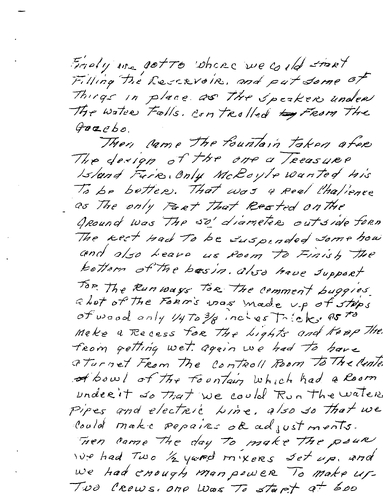 Finaly we gotto where we could start
Filling the Reservoir. and put some of
Things in place as the Speaker under
The Water Falls. Controlled From The
Gazebo.
Then came the fountain taken afer
The design of the one a Treasure
Island Fair. Only McRoyle wanted his
To be better. That was a Real Challence
as The only Part That Rested on the
Ground was The 50' diameter outside form
The rest had To be suspended some how
and also Leave us Room to Finish the
bottom of the basin. also have support
For The Runways for The comment buggies.
a Lot of the Forms was made up of strips
of wood only 1/4 To 3/8 inches Thick as To
Make a Recess for The Lights and Keep The
from getting wet. again we had To have
a turnet From The Controll Room To The Cente
bowl of the fountain which had a Room
under it so That we could Run The water
Pipes and electric Line. also so that we
could make repairs or adjustments.
Then came The day to make the pour
we had Two 1/2 yard mixers set up. and
we had enough man power To make up
Two crews. one was To start at 600